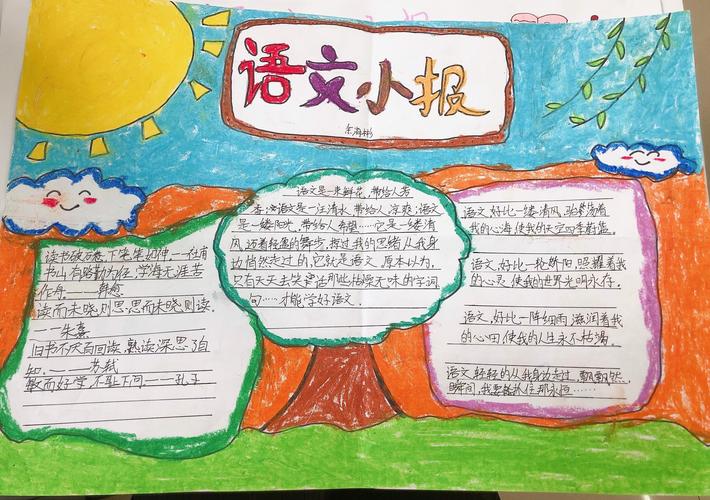 语文小报
读书破万卷,下笔如有神.——杜甫
书山有路勤为径,学海无涯苦
作舟.——韩愈
读而未晓,则思思而未晓则读.
——朱熹
旧书不厌百回读,熟读深思子自
知.——苏轼
敏而好学 不耻下问.——孔子
语文是一束鲜花,带给人芳
香;语文是一汪清水,带给人凉爽;语文
是一缕阳光,带给人希望……它是一缕清
风,迈着轻盈的舞步,撩过我的思绪,从我身
边悄然走过的,它就是语文.原本以为,
只有天天去学那些枯燥无味的字词
句……才能学好语文.
语文,好比一缕清风,
我的心海,使我的天空四季蔚蓝。
语文,好比一轮骄阳,照耀着我
的心灵,使我的世界光明永存.
语文,好比一阵细雨,滋润着我
的心田,使我的人生永不枯竭.
语文轻轻的从我身边走过,飘飘然.
瞬间,我要抓住那永恒……